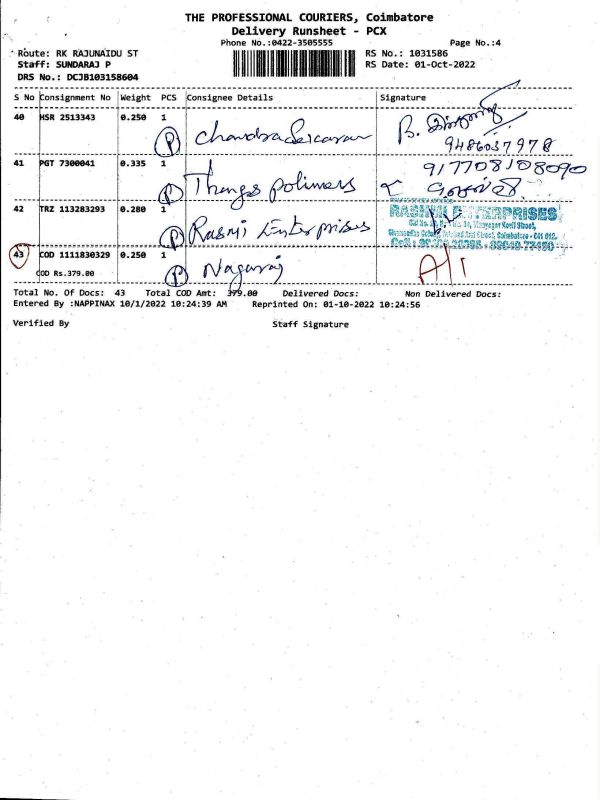 THE PROFESSIONAL COURIERS, Coimbatore
Delivery Runsheet - PCX
Phone No.:0422-3505555 Page No.:4
Route: RK RAJUNAIDU ST RS No.: 1031586
Staff: SUNDARAJ P RS Date: 01-Oct-2022
DRS No.: DCJB103158604
S No Consignment No Weight PCS Consignee Details Signature
40 HSR 2513343 0.250 1
P Chandrasekaran B.
9486037978
41 PGT 7300041 0.335 1 917708108090
P Thangas polimers
42 TRZ 113283293 0.280 1 RASMI ENTERPRISES
P Rasmi Enterprises
Vinayagar Kovil Street,
Coimbatore - 641 012.
43 COD 1111830329 0.250 1
P Nagaraj
COD Rs.379.00
Total No. Of Docs: 43 Total COD Amt: 379.00 Delivered Docs: Non Delivered Docs:
Entered By :NAPPINAX 10/1/2022 10:24:39 AM Reprinted On: 01-10-2022 10:24:56
Verified By Staff Signature